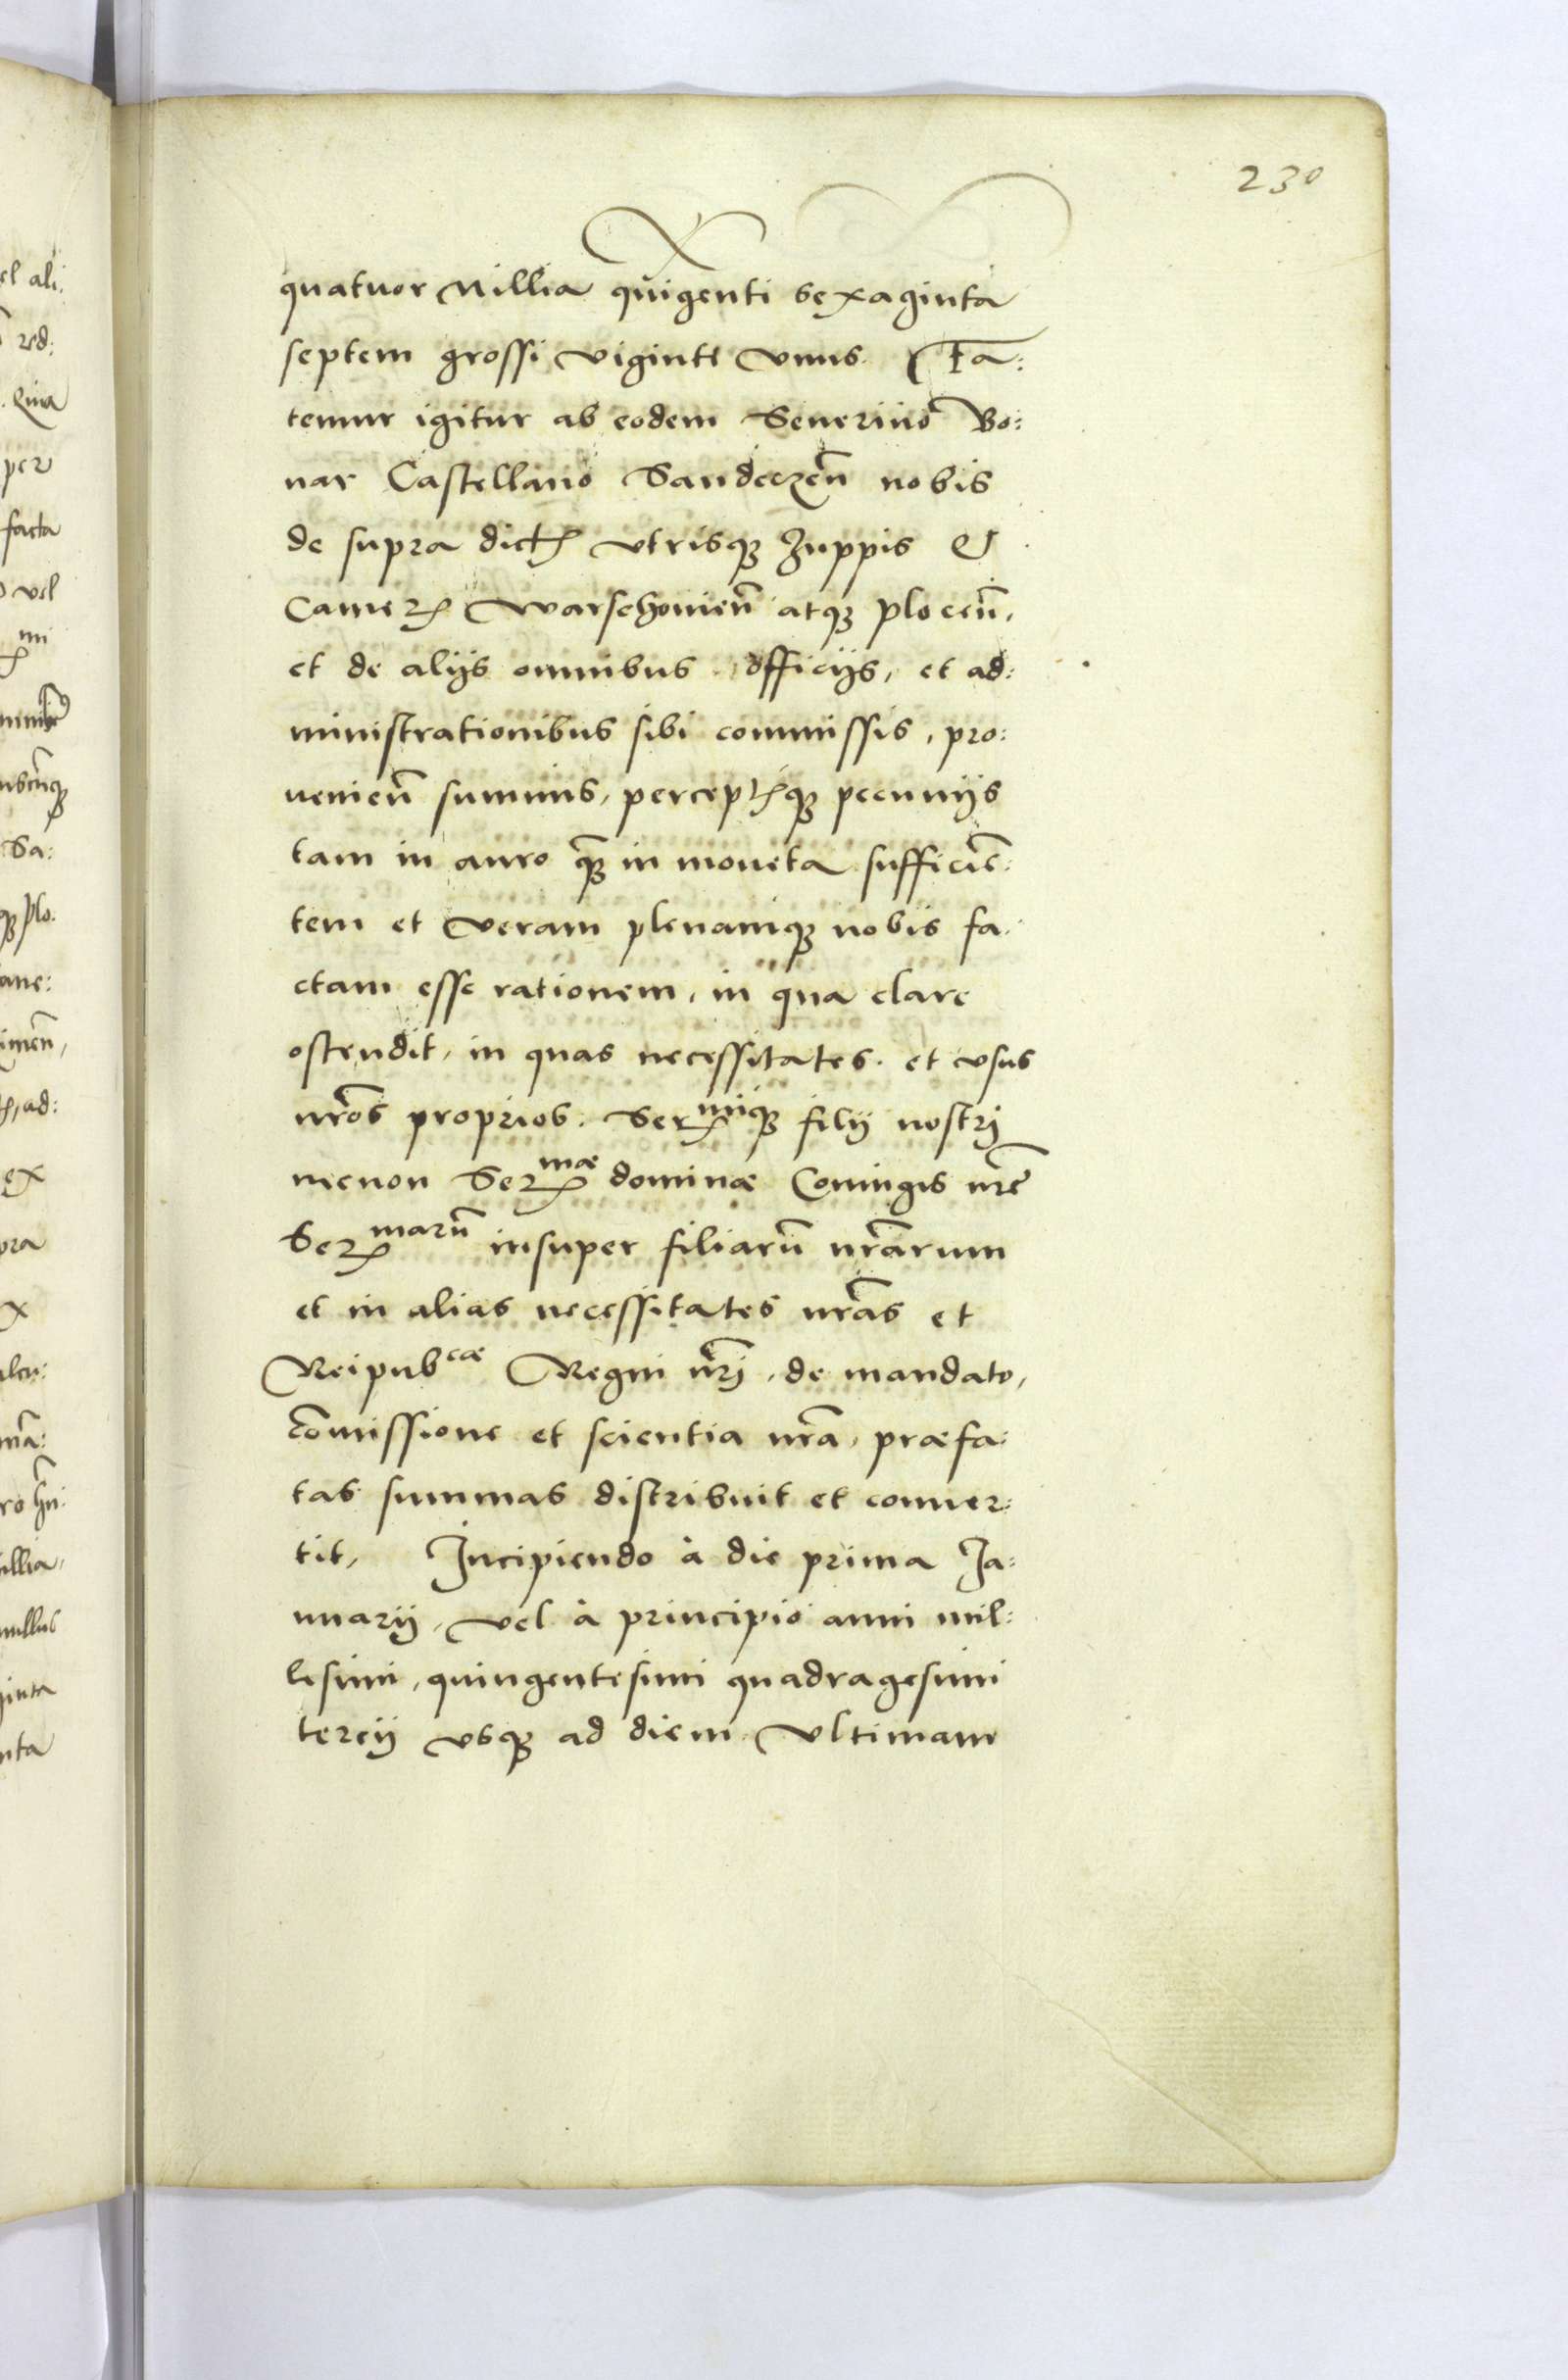 230
quatuor Millia quīgenti sexaginta
septem grossi viginti vnus. Fa:
temur igitur ab eodem Seuerino Bo:
nar Castellano Sandeczeñ nobis
de supra dictꝭ vtrisqꝫ Zuppis &
Camerꝭ Warschouieñ atqꝫ ploceñ,
et de alijs omnibus officijs, et ad:
ministrationibus sibi commissis, pro:
uenieñ summis, perceptꝭqꝫ pecunijs
tam in auro qꝫ̃ in moneta sufficiē:
tem et veram plenamqꝫ nobis fa:
ctam esse rationem, in qua clare
ostendit, in quas necessitates. et vsus
nr̃os proprios. Ser^miqꝫ filij nostrj
necnon Ser^mae dominæ Coniugis nr̃e
Ser^marũ insuper filiarũ nr̃arum
et in alias necessitates nr̃as et
Reipub^cae Regni nr̃j, de mandato,
cõmissione et scientia nr̃a, præfa:
tas summas distribuit et conuer:
tit, Incipiendo à die prima Ja:
nuarij, vel à principio anni mil:
lesimi, quingentesimi quadragesimi
tercij vsqꝫ ad diem vltimam
el ali:
red:
per
facta
vel
mi
Sa:
qꝫ plo.
ane:
ad:
ex